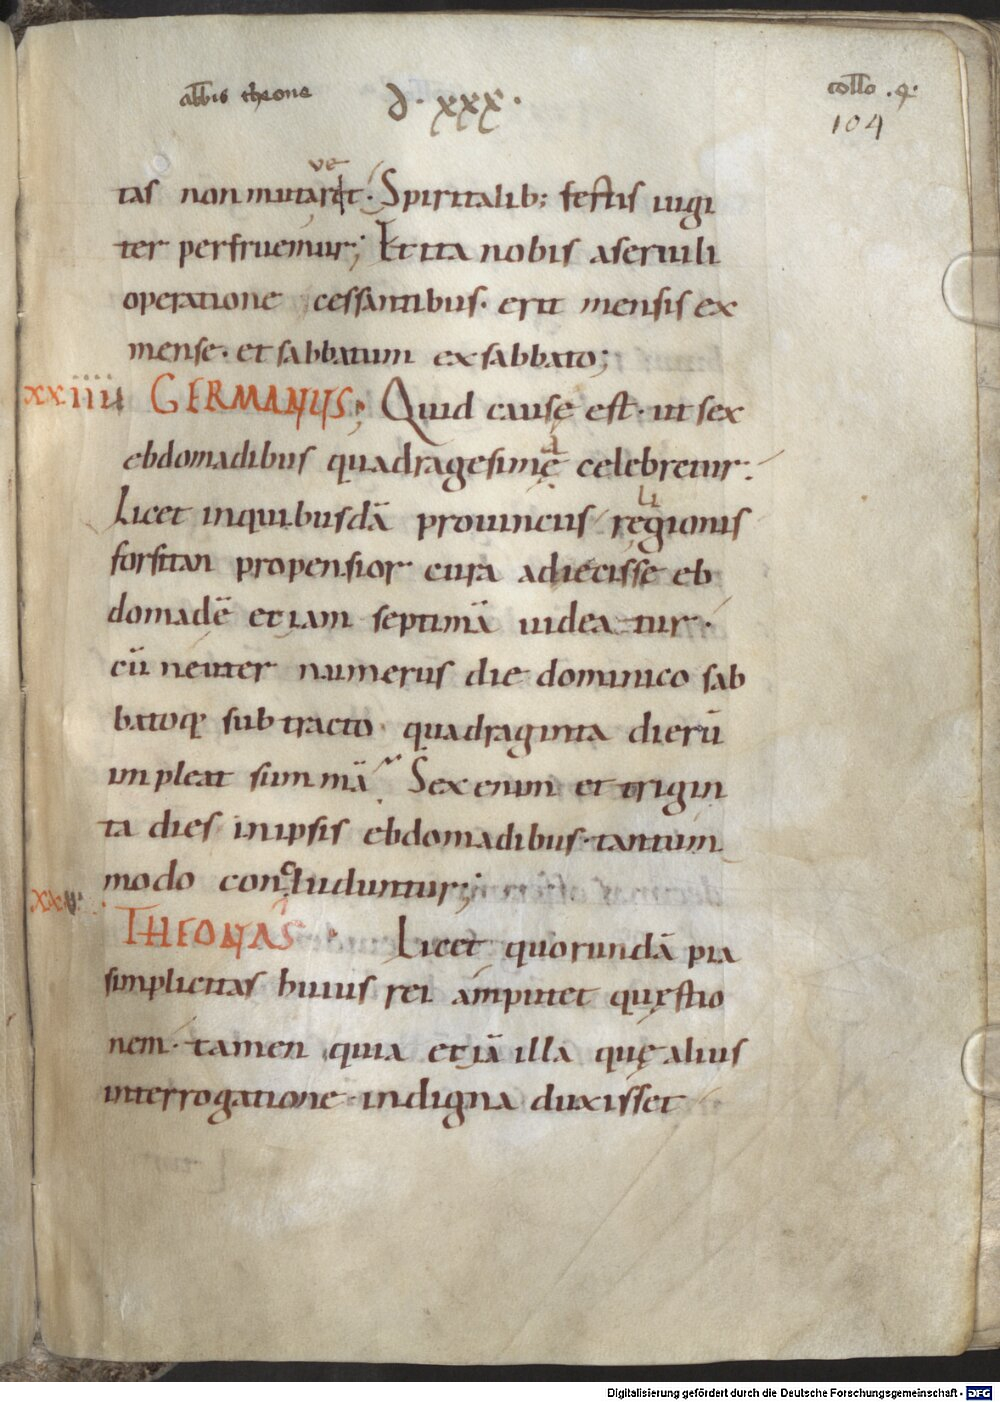 abb̅is theone d· xxx· coll̅o .q·
104
tas non mutaret· Spiritalib; festis iugi
ve
ter perfruemur; Et ita nobis aseruili
operatione cessantibus· erit mensis ex
mense· et sabbatum exsabbato;
xxiiii GERMANUS; Quid causę est· ut sex
ebdomadibus quadragesimę celebretur·
a
Licet inquibusdā prouinciis regionis
li
forsitan propensior cura adiecisse eb
domadē etiam septimā uidea tur·
cū neuter numerus die dominico sab
batoq; subtracto· quadraginta dierū
impleat summā Sex enim et trigin
ta dies inipsis ebdomadibus· tantum
modo concluduntur;
xxv· THEONAS· Licet quorundā pia
simplicitas huius rei amputet quęstio
nem· tamen quia etiā illa quę alius
interrogatione indigna duxisset
Digitalisierung gefördert durch die Deutsche Forschungsgemeinschaft · DFG